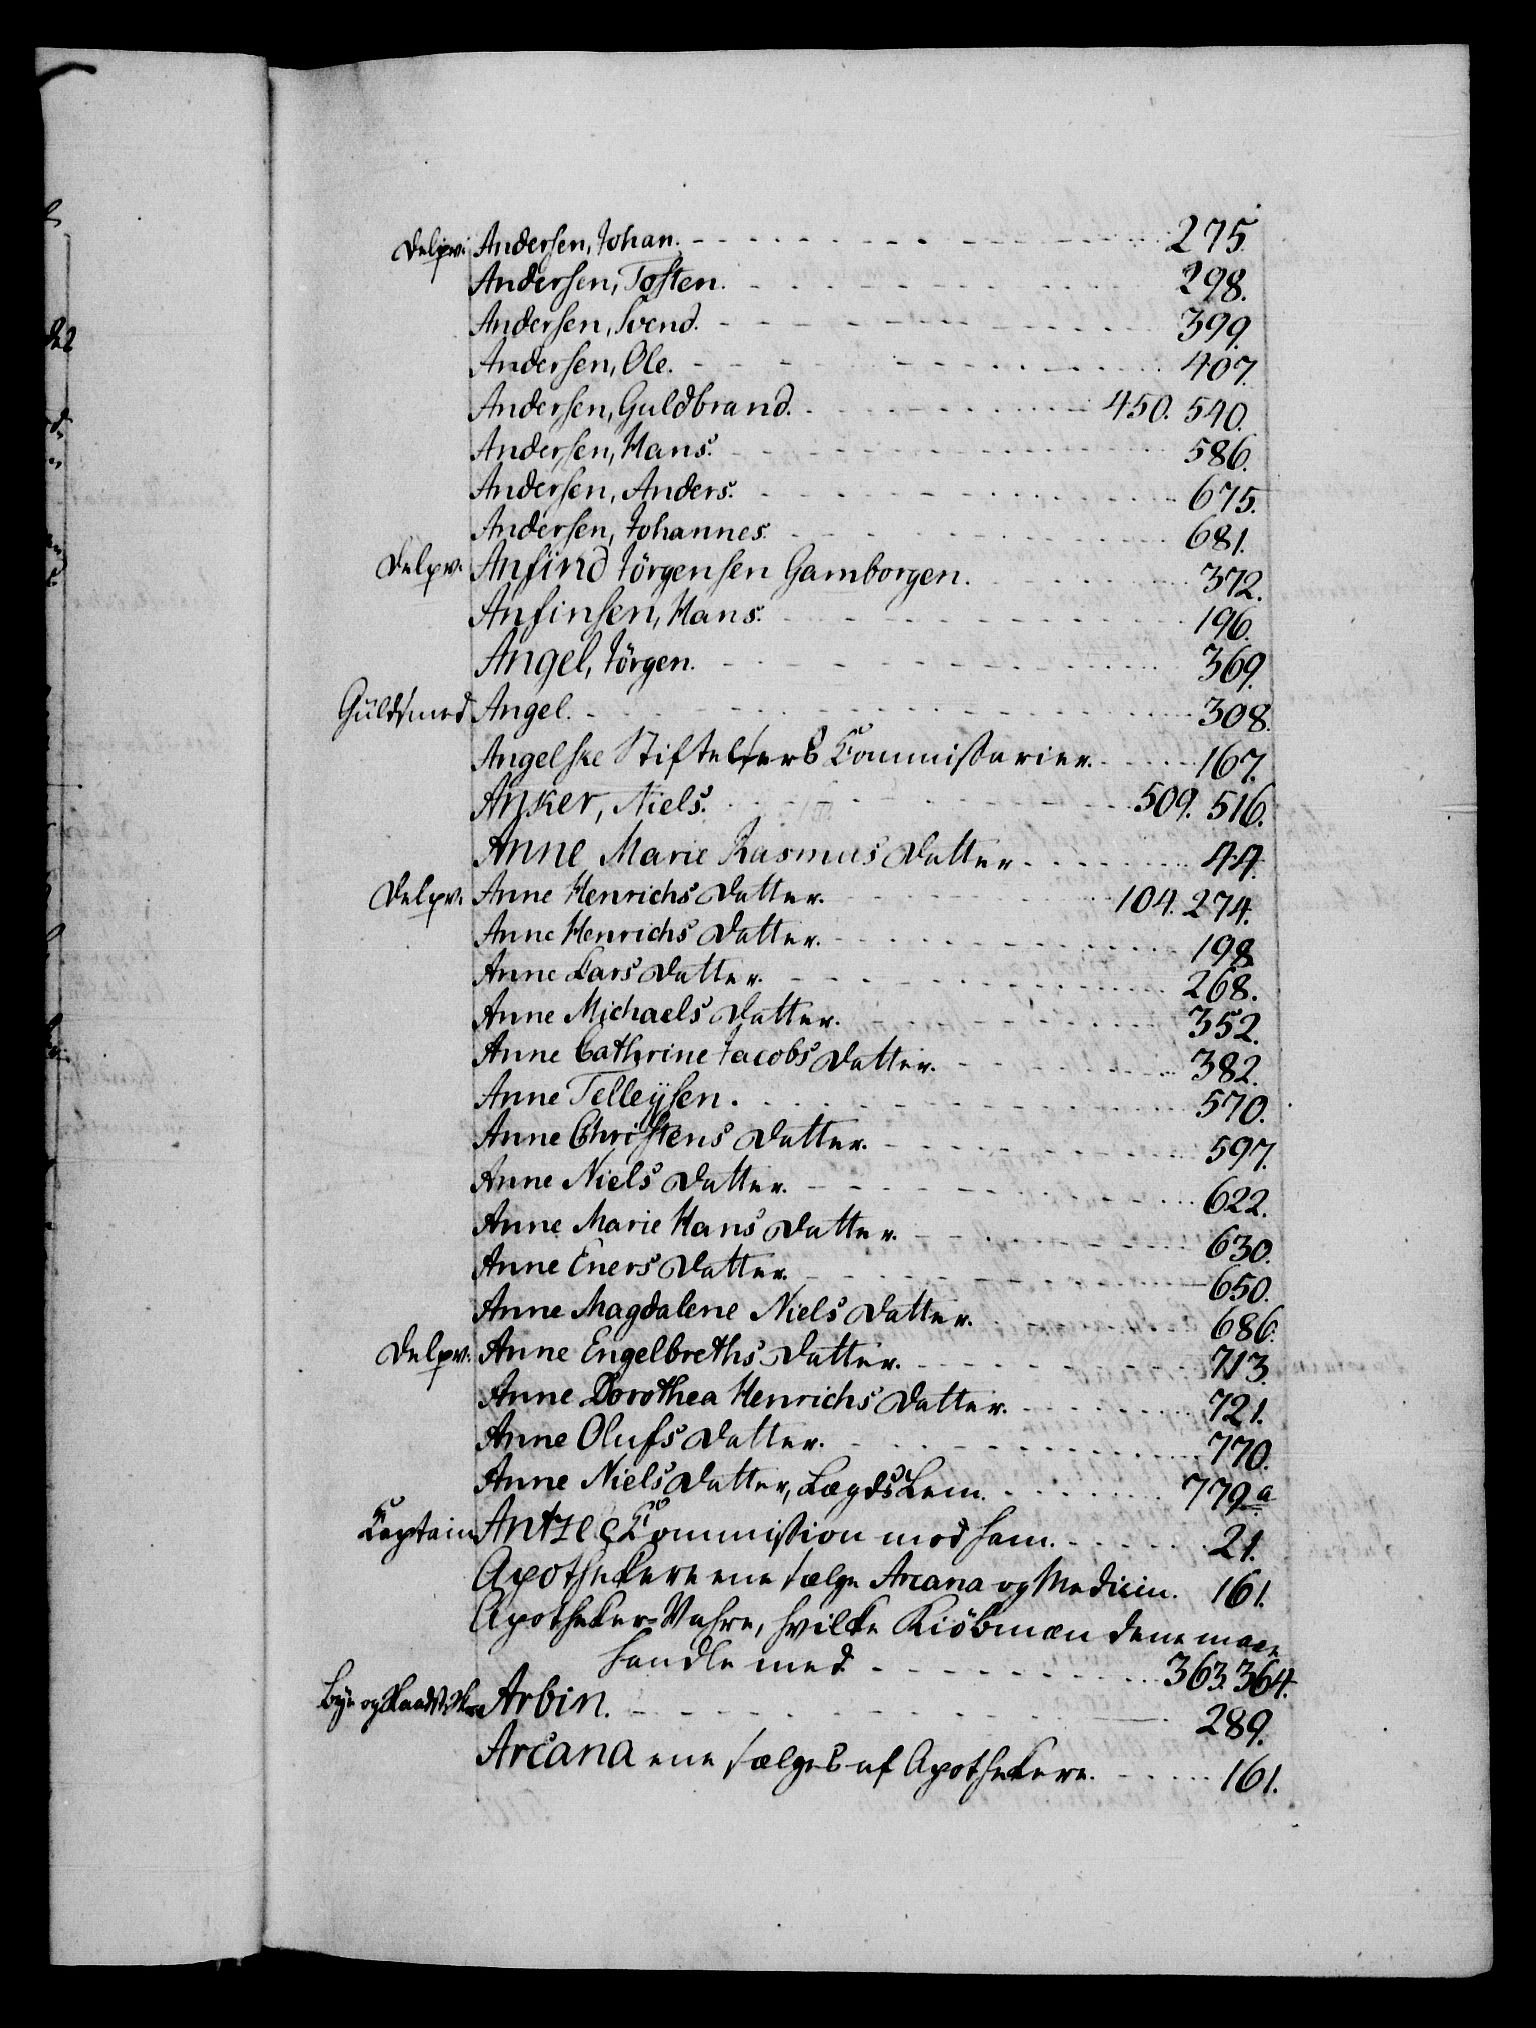 Delqv. Andersen, Johan. 275.
Andersen, Tosten. 298.
Andersen, Svend. 399.
Andersen, Ole. 407.
Andersen, Guldbrand. 450. 540.
Andersen, Hans. 586.
Andersen, Anders. 675.
Andersen, Johannes. 681.
Delqv. Anfind Jörgensen Gamborgen. 372.
Anfinsen, Hans. 196.
Angel, Jörgen. 369.
Guldsmed Angel. 308.
Angelske Stiftelsers Commissarier. 167.
Anker, Niels. 509. 516.
Anne Marie Rasmus Datter. 44.
Delqv. Anne Henrichs Datter. 104. 274.
Anne Henrichs Datter. 198.
Anne Lars Datter. 268.
Anne Michaels Datter. 352.
Anne Cathrine Jacobs Datter. 382.
Anne Telleysen. 570.
Anne Christens Datter. 597.
Anne Niels Datter. 622.
Anne Marie Hans Datter. 630.
Anne Eners Datter. 650.
Anne Magdalene Niels Datter. 686.
Delqv. Anne Engelbreths Datter. 713.
Anne Dorothea Henrichs Datter. 721.
Anne Olufs Datter. 770.
Anne Niels Datter, Lægds Lem. 779.a
Captain Antzee Commission mod ham. 21.
Apothekere ene sælge Arcana og Medicin. 161.
Apotheker-Vahre, hvilke Kiöbmæn dene maae
handle med 363. 364.
Bye og Arbin. 289.
Arcana ene sælges af Apothekere. 161.